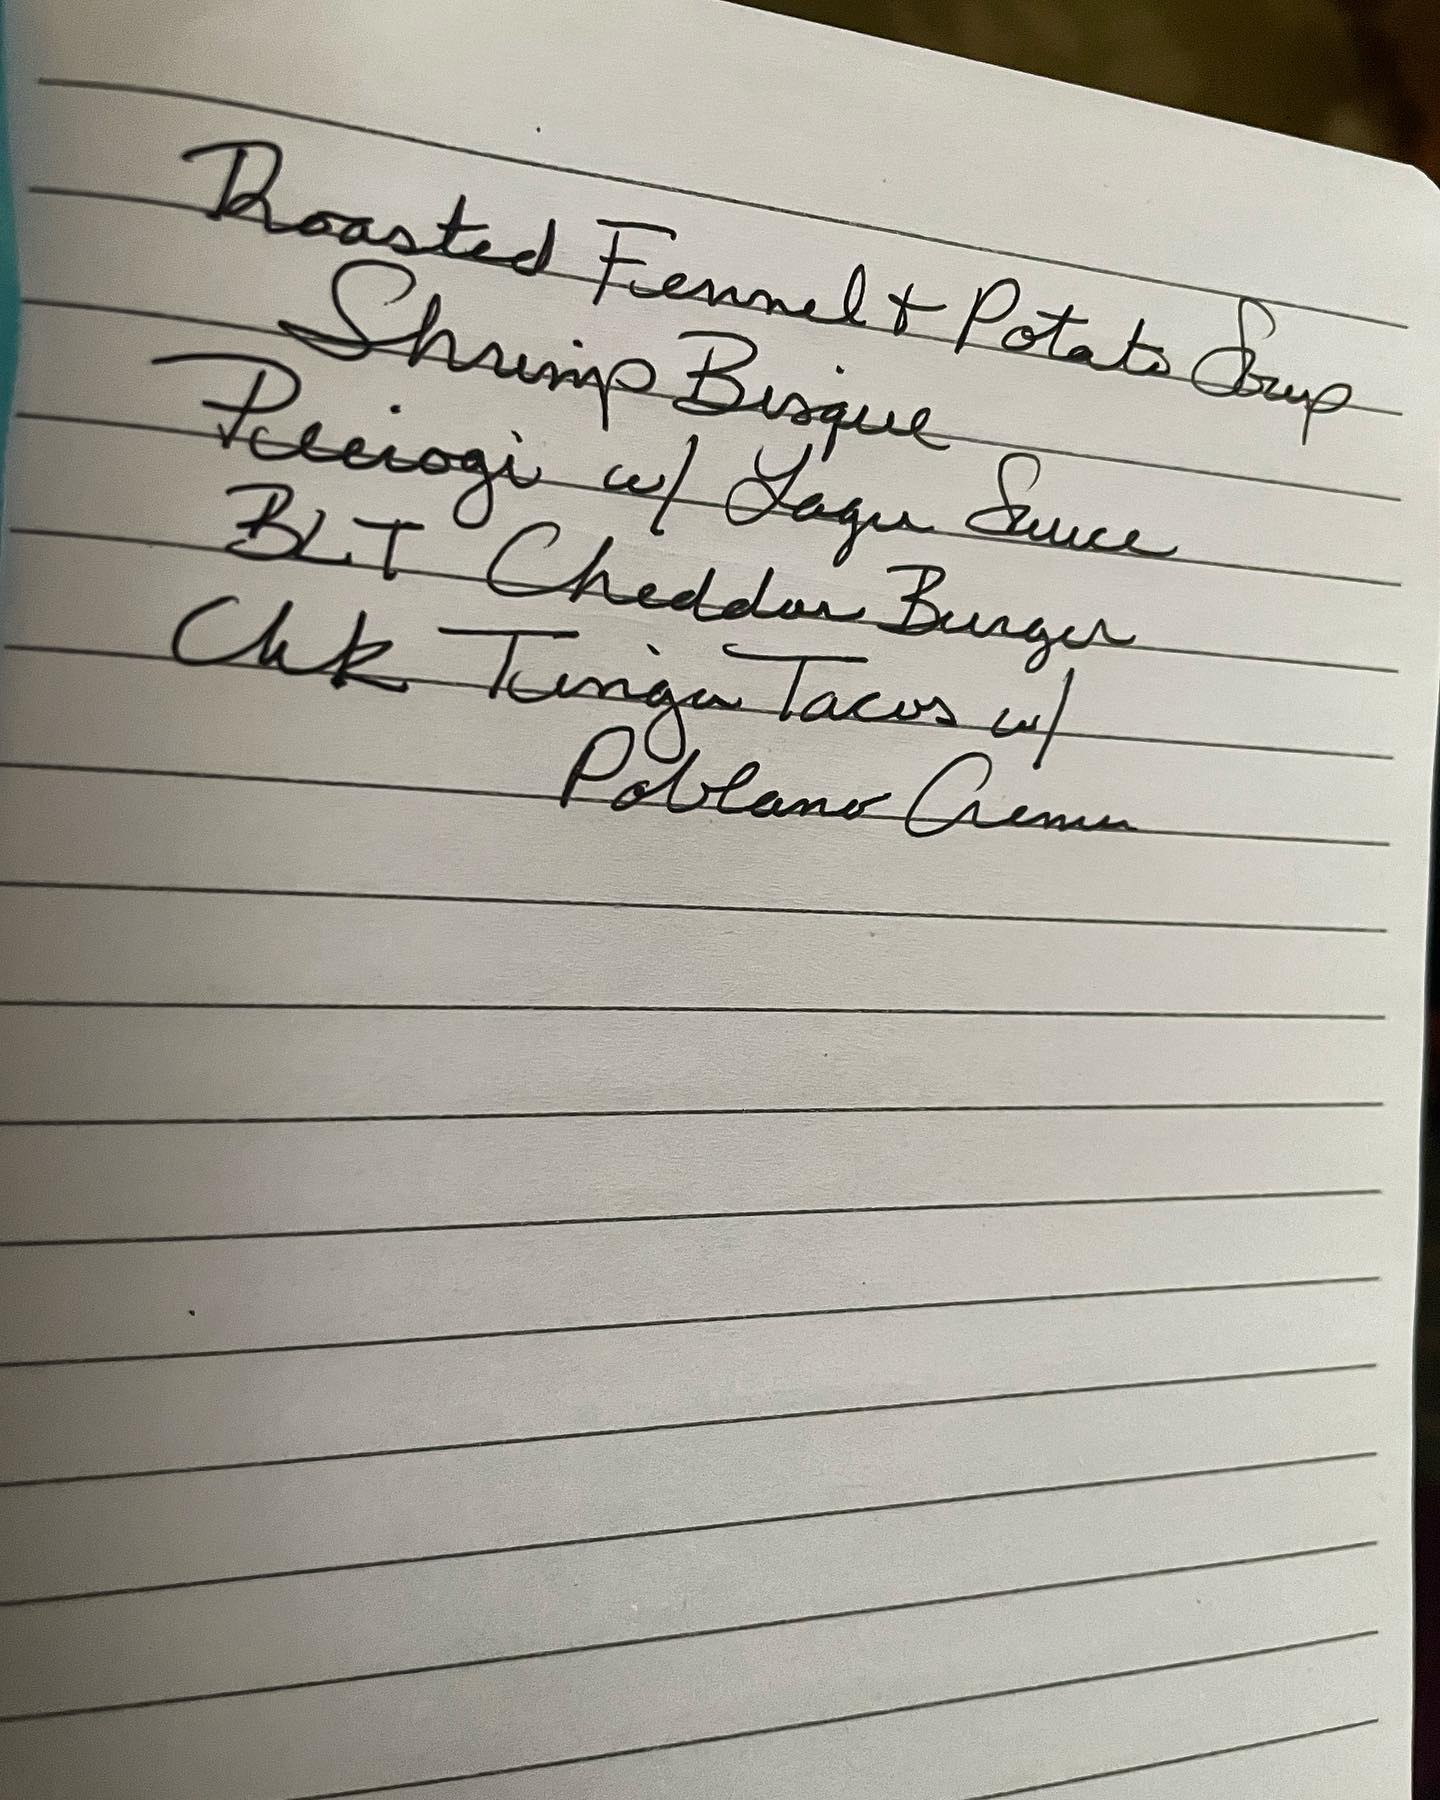 Roasted Fennel + Potato Soup
Shrimp Bisque
Pierogi w/ Sauce
BLT Cheddar Burger
Chk Tinga Tacos w/
Poblano Crema